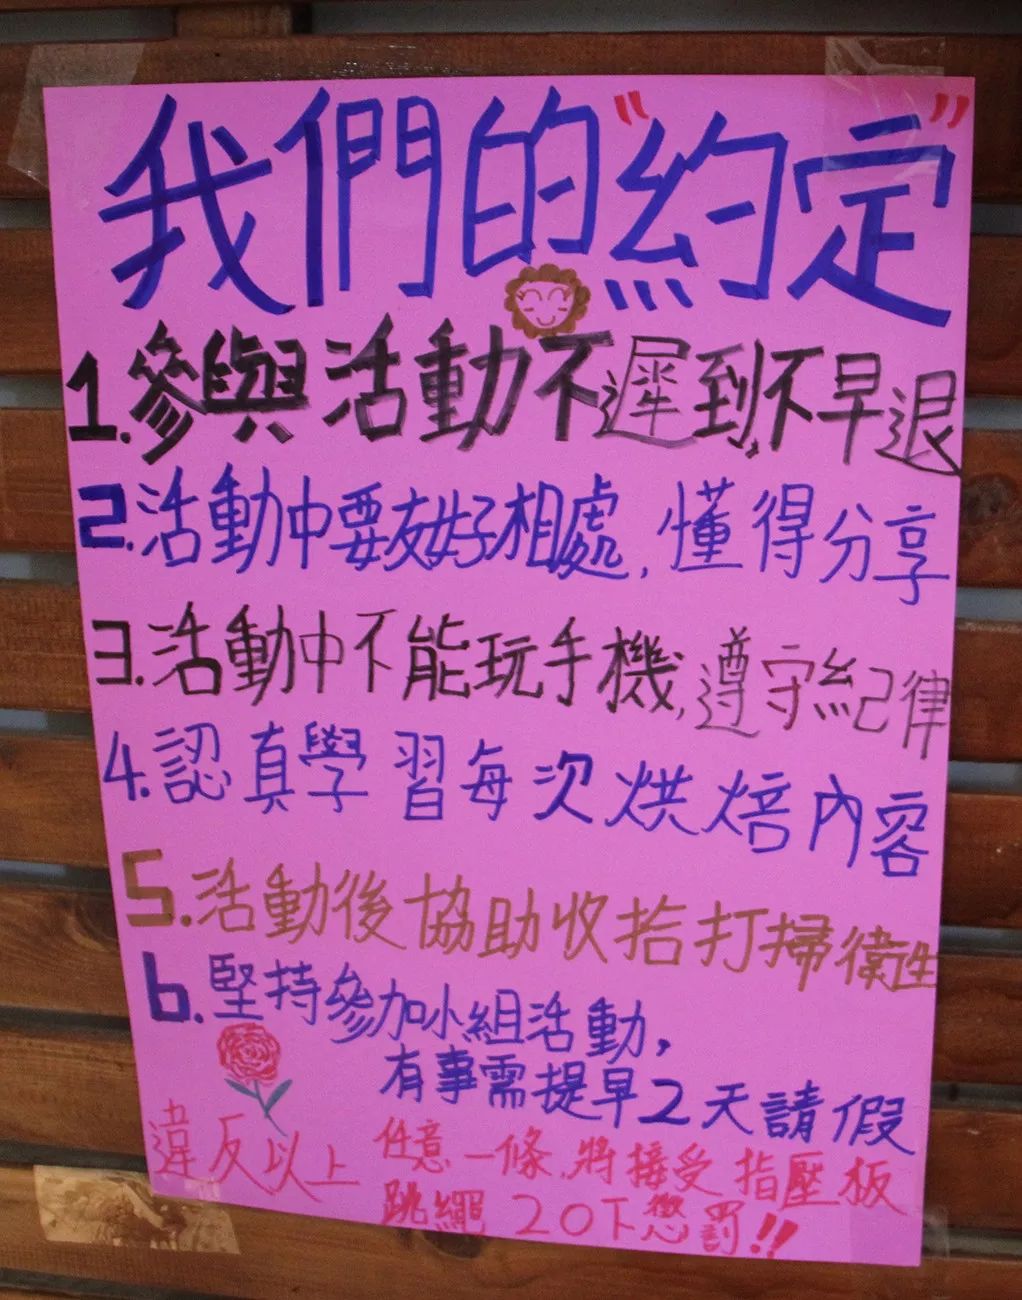 我們的"約定"
1.參與活動不遲到,不早退
2.活動中要友好相處,懂得分享
3.活動中不能玩手機,遵守紀律
4.認真學習每次烘焙內容
5.活動後協助收拾打掃衛生
6.堅持參加小組活動,
有事需提早2天請假
違反以上任意一條,將接受指壓板
跳繩20下懲罰!!